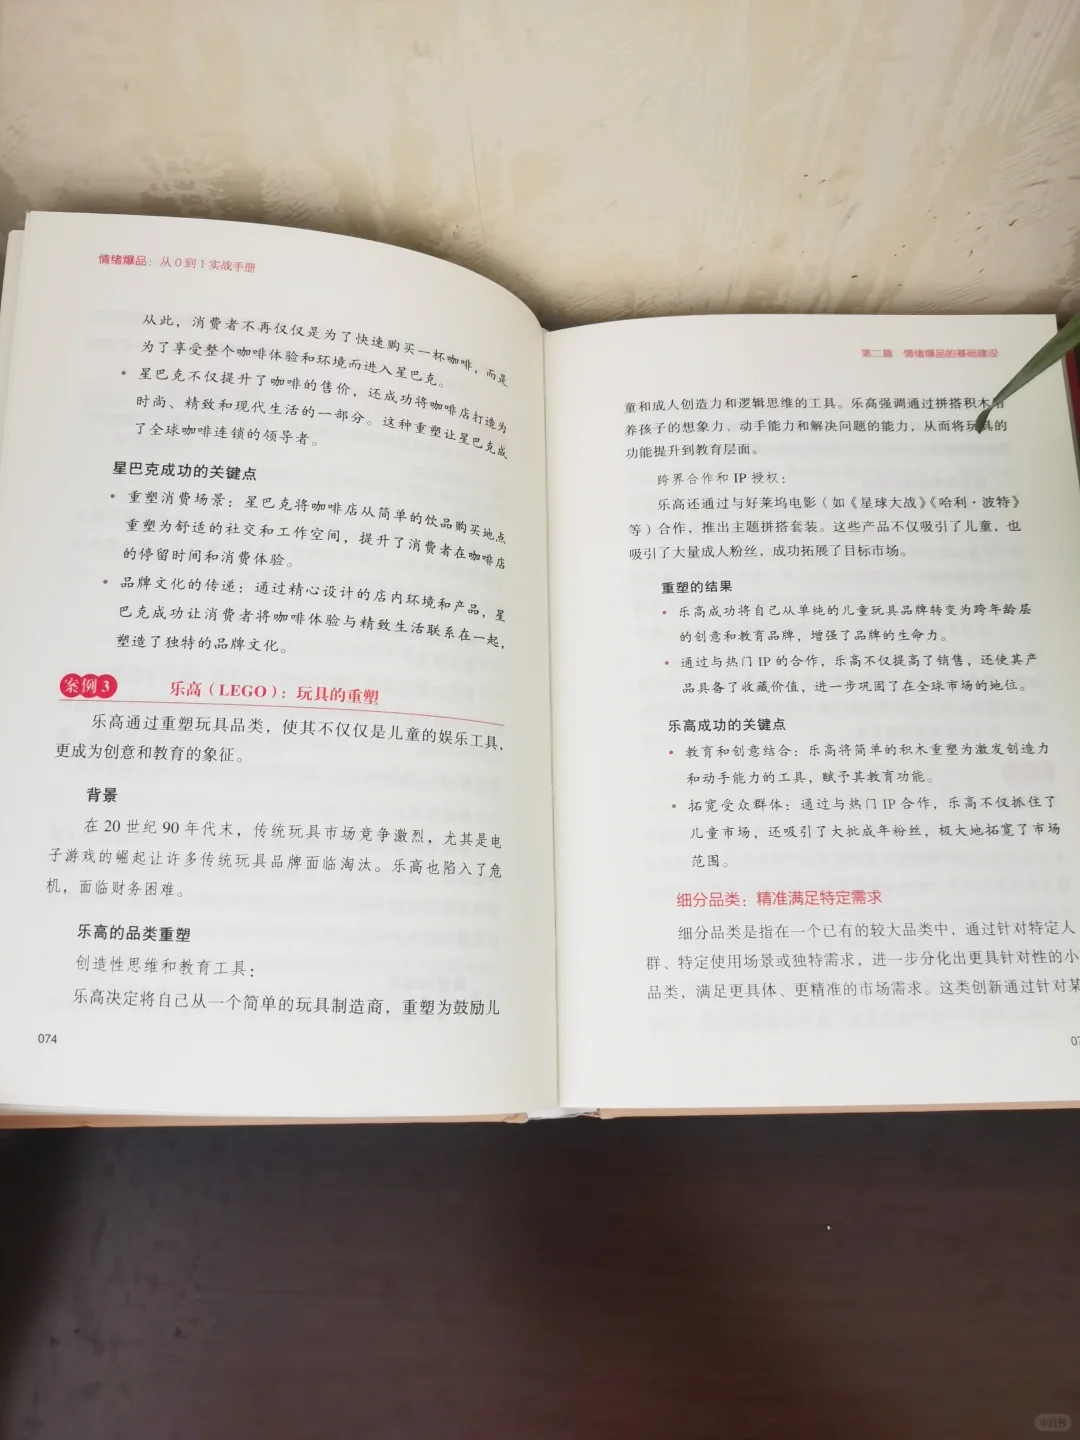 情绪爆品：从0到1实战手册
从此，消费者不再仅仅是为了快速购买一杯咖啡，而是
为了享受整个咖啡体验和环境而进入星巴克。
• 星巴克不仅提升了咖啡的售价，还成功将咖啡店打造为
时尚、精致和现代生活的一部分。这种重塑让星巴克成
了全球咖啡连锁的领导者。
星巴克成功的关键点
• 重塑消费场景：星巴克将咖啡店从简单的饮品购买地点
重塑为舒适的社交和工作空间，提升了消费者在咖啡店
的停留时间和消费体验。
• 品牌文化的传递：通过精心设计的店内环境和产品，星
巴克成功让消费者将咖啡体验与精致生活联系在一起，
塑造了独特的品牌文化。
案例3 乐高（LEGO）：玩具的重塑
乐高通过重塑玩具品类，使其不仅仅是儿童的娱乐工具，
更成为创意和教育的象征。
背景
在20世纪90年代末，传统玩具市场竞争激烈，尤其是电
子游戏的崛起让许多传统玩具品牌面临淘汰。乐高也陷入了危
机，面临财务困难。
乐高的品类重塑
创造性思维和教育工具：
乐高决定将自己从一个简单的玩具制造商，重塑为鼓励儿
074
第二篇 情绪爆品的基础建设
童和成人创造力和逻辑思维的工具。乐高强调通过拼搭积木
养孩子的想象力、动手能力和解决问题的能力，从而将玩具的
功能提升到教育层面。
跨界合作和IP授权：
乐高还通过与好莱坞电影（如《星球大战》《哈利·波特》
等）合作，推出主题拼搭套装。这些产品不仅吸引了儿童，也
吸引了大量成人粉丝，成功拓展了目标市场。
重塑的结果
• 乐高成功将自己从单纯的儿童玩具品牌转变为跨年龄层
的创意和教育品牌，增强了品牌的生命力。
• 通过与热门IP的合作，乐高不仅提高了销售，还使其产
品具备了收藏价值，进一步巩固了在全球市场的地位。
乐高成功的关键点
• 教育和创意结合：乐高将简单的积木重塑为激发创造力
和动手能力的工具，赋予其教育功能。
• 拓宽受众群体：通过与热门IP合作，乐高不仅抓住了
儿童市场，还吸引了大批成年粉丝，极大地拓宽了市场
范围。
细分品类：精准满足特定需求
细分品类是指在一个已有的较大品类中，通过针对特定人
群、特定使用场景或独特需求，进一步分化出更具针对性的小
品类，满足更具体、更精准的市场需求。这类创新通过针对某